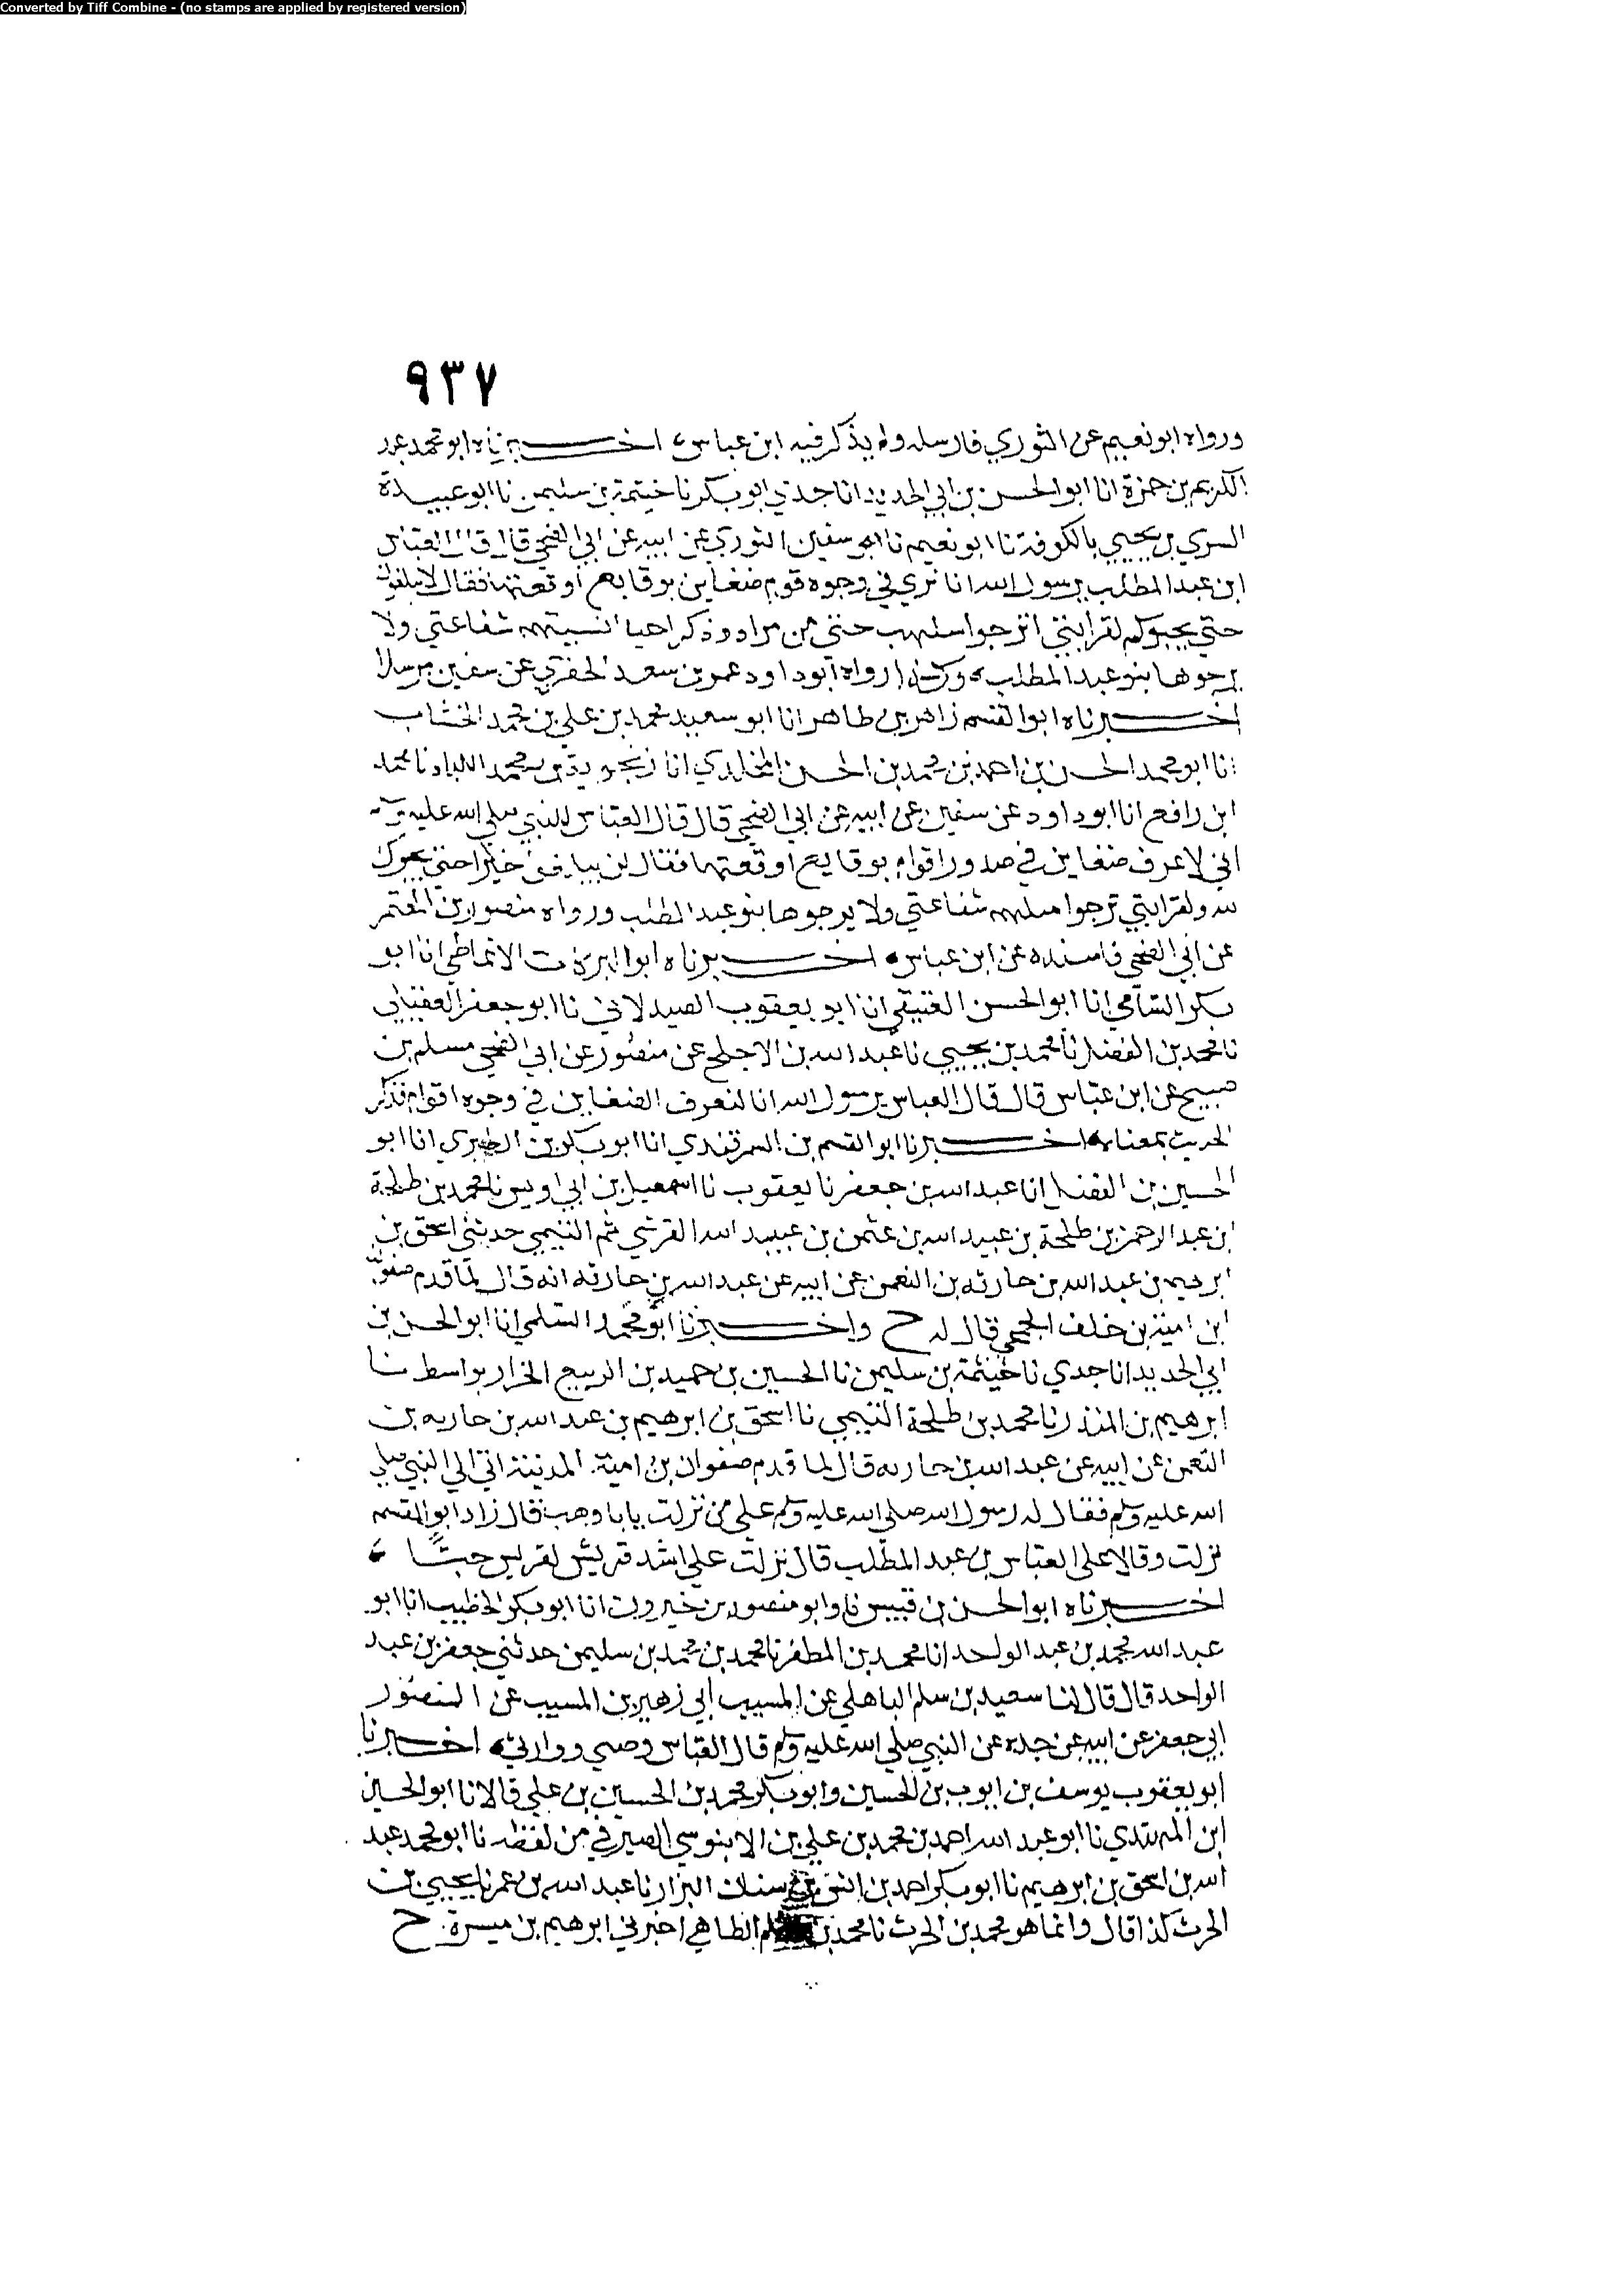 Converted by Tiff Combine - (no stamps are applied by registered version)
٩٣٧
ورواه ابو نعيم عن الثوري فارسله ولم يذكر فيه ابن عباس اخبرناه ابو محمد عبد
الكريم بن حمزة انا ابو الحسن بن ابي الحديد انا جدي ابو بكر نا خيثمة بن سليمن نا ابو عبيدة
السري بن يحيى بالكوفة نا ابو نعيم نا سفين الثوري عن ابيه عن ابي الضحى قال قال العباس
ابن عبد المطلب يرسول الله انا نرى في وجوه قوم ضغاين بوقايع اوقعتها فقال لا يبلغون
حتى يحبوكم لقرابتي اترجوا سلهب حتى من مراد وذكر احيا شفاعتي ولا
يرجوها بنو عبد المطلب وكذا رواه ابو داود عمر بن سعد الحفري عن سفين مرسلا
اخبرناه ابو القسم زاهر بن طاهر انا ابو سعيد محمد بن علي بن محمد الخشاب
انا ابو محمد الحسن بن احمد بن محمد بن الحسن المخلدي انا زنجويه بن محمد اللباد نا محمد
ابن رافع انا ابو داود عن سفين عن ابيه عن ابي الضحى قال قال العباس للنبي صلى الله عليه وسلم
اني لاعرف ضغاين في صدور اقوام بوقايع اوقعتها فقال لن خيرا حتى يحبوك
لله ولقرابتي ترجوا سلهم شفاعتي ولا يرجوها بنو عبد المطلب ورواه منصور بن المعتمر
عن ابي الضحى فاسنده عن ابن عباس اخبرناه ابو البركات الانماطي انا ابو
بكر الشامي انا ابو الحسن العتيقي انا ابو يعقوب الصيدلاني نا ابو جعفر العقيلي
نا محمد بن الفضل نا محمد بن يحيى نا عبد الله بن الاجلح عن منصور عن ابي الضحى مسلم بن
صبيح عن ابن عباس قال قال العباس يرسول الله انا لنعرف الضغاين في وجوه اقوام فذكر
الحديث بمعناه اخبرنا ابو القسم بن السمرقندي انا ابو بكر بن الطبري انا ابو
الحسين بن الفضل انا عبد الله بن جعفر نا يعقوب نا اسمعيل بن ابي اويس نا محمد بن طلحة
ابن عبد الرحمن بن طلحة بن عبيد الله بن عثمن بن عبيد الله القرشي ثم التيمي حدثني اسحق بن
ابرهيم بن عبد الله بن حارثه بن النعمن عن ابيه عن عبد الله بن حارثه انه قال لما قدم صفوان
ابن امية بن خلف الجمحي قال له ح واخبرنا ابو محمد السلمي انا ابو الحسن بن
ابي الحديد انا جدي نا خيثمة بن سليمن نا الحسين بن حميد بن الربيع الخزاز بواسط نا
ابرهيم بن المنذر نا محمد بن طلحة التيمي نا اسحق بن ابرهيم بن عبد الله بن حاربه بن
النعمن عن ابيه عن عبد الله بن حاربه قال لما قدم صفوان بن امية المدينة اتى الى النبي صلى
الله عليه وسلم فقال له رسول الله صلى الله عليه وسلم على من نزلت يابا وهب قال زاد ابو القسم
نزلت وقالا على العباس بن عبد المطلب قال نزلت على اشد قريش لقريش حبا
اخبرناه ابو الحسن بن قبيس نا وابو منصور بن خيرون انا ابو بكر الخطيب انا ابو
عبد الله محمد بن عبد الواحد انا محمد بن المظفر نا محمد بن محمد بن سليمن حدثني جعفر بن عبد
الواحد قال قال لنا سعيد بن سلم الباهلي عن المسيب ابي زهير بن المسيب عن المنصور
ابي جعفر عن ابيه عن جده عن النبي صلى الله عليه وسلم قال العباس وصيي ووارثي اخبرنا
ابو يعقوب يوسف بن ايوب بن الحسين وابو بكر محمد بن الحسين بن علي قالا نا ابو الحسين
ابن المهتدي نا ابو عبد الله احمد بن محمد بن علي بن الابنوسي الصيرفي من لفظه نا ابو محمد عبد
الله بن اسحق بن ابرهيم نا ابو بكر احمد بن اسحق بن سنان البزار نا عبد الله بن عمر نا يحيى بن
الحرث كذا قال وانما هو محمد بن الحرث نا محمد بن الطاهي اخبرني ابرهيم بن ميسرة ح